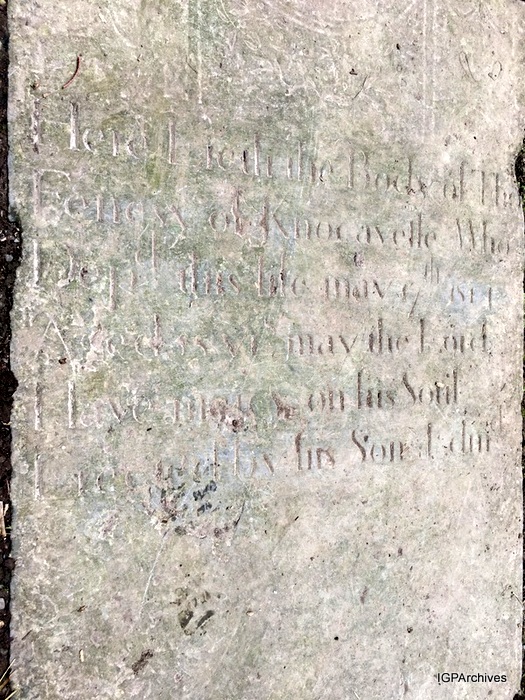 Here Lieth the Body of Tho
Fenesy of Knocavelle Who
Dep.d this life may th 1811
Aged yrs may the Lord
Have mercy on his Soul
Erected by his Son
IGPArchives